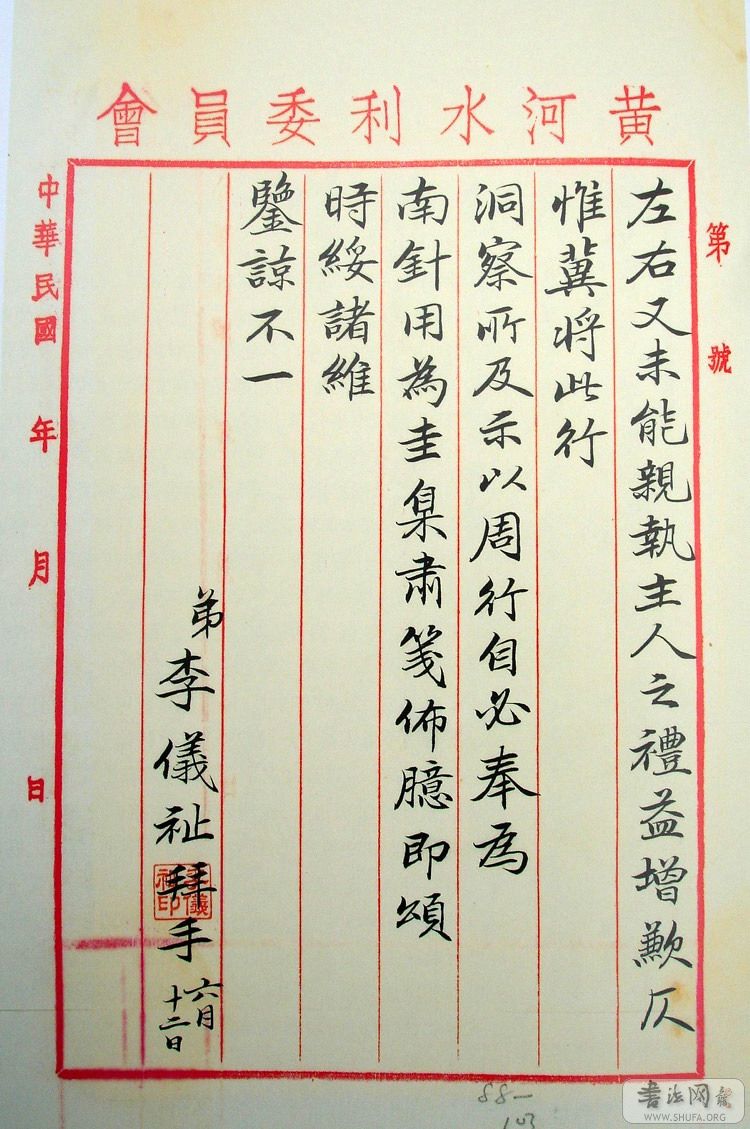 黄河水利委員會
第 號
左右又未能親執主人之禮益增歉仄
惟冀將此行
洞察所及示以周行自必奉為
南針用為圭臬肅箋佈臆即頌
時綏諸維
鑒諒不一
弟李儀祉拜手 六月十二日
李儀祉印
中華民國 年 月 日
88-
103
書法网
WWW.SHUFA.ORG